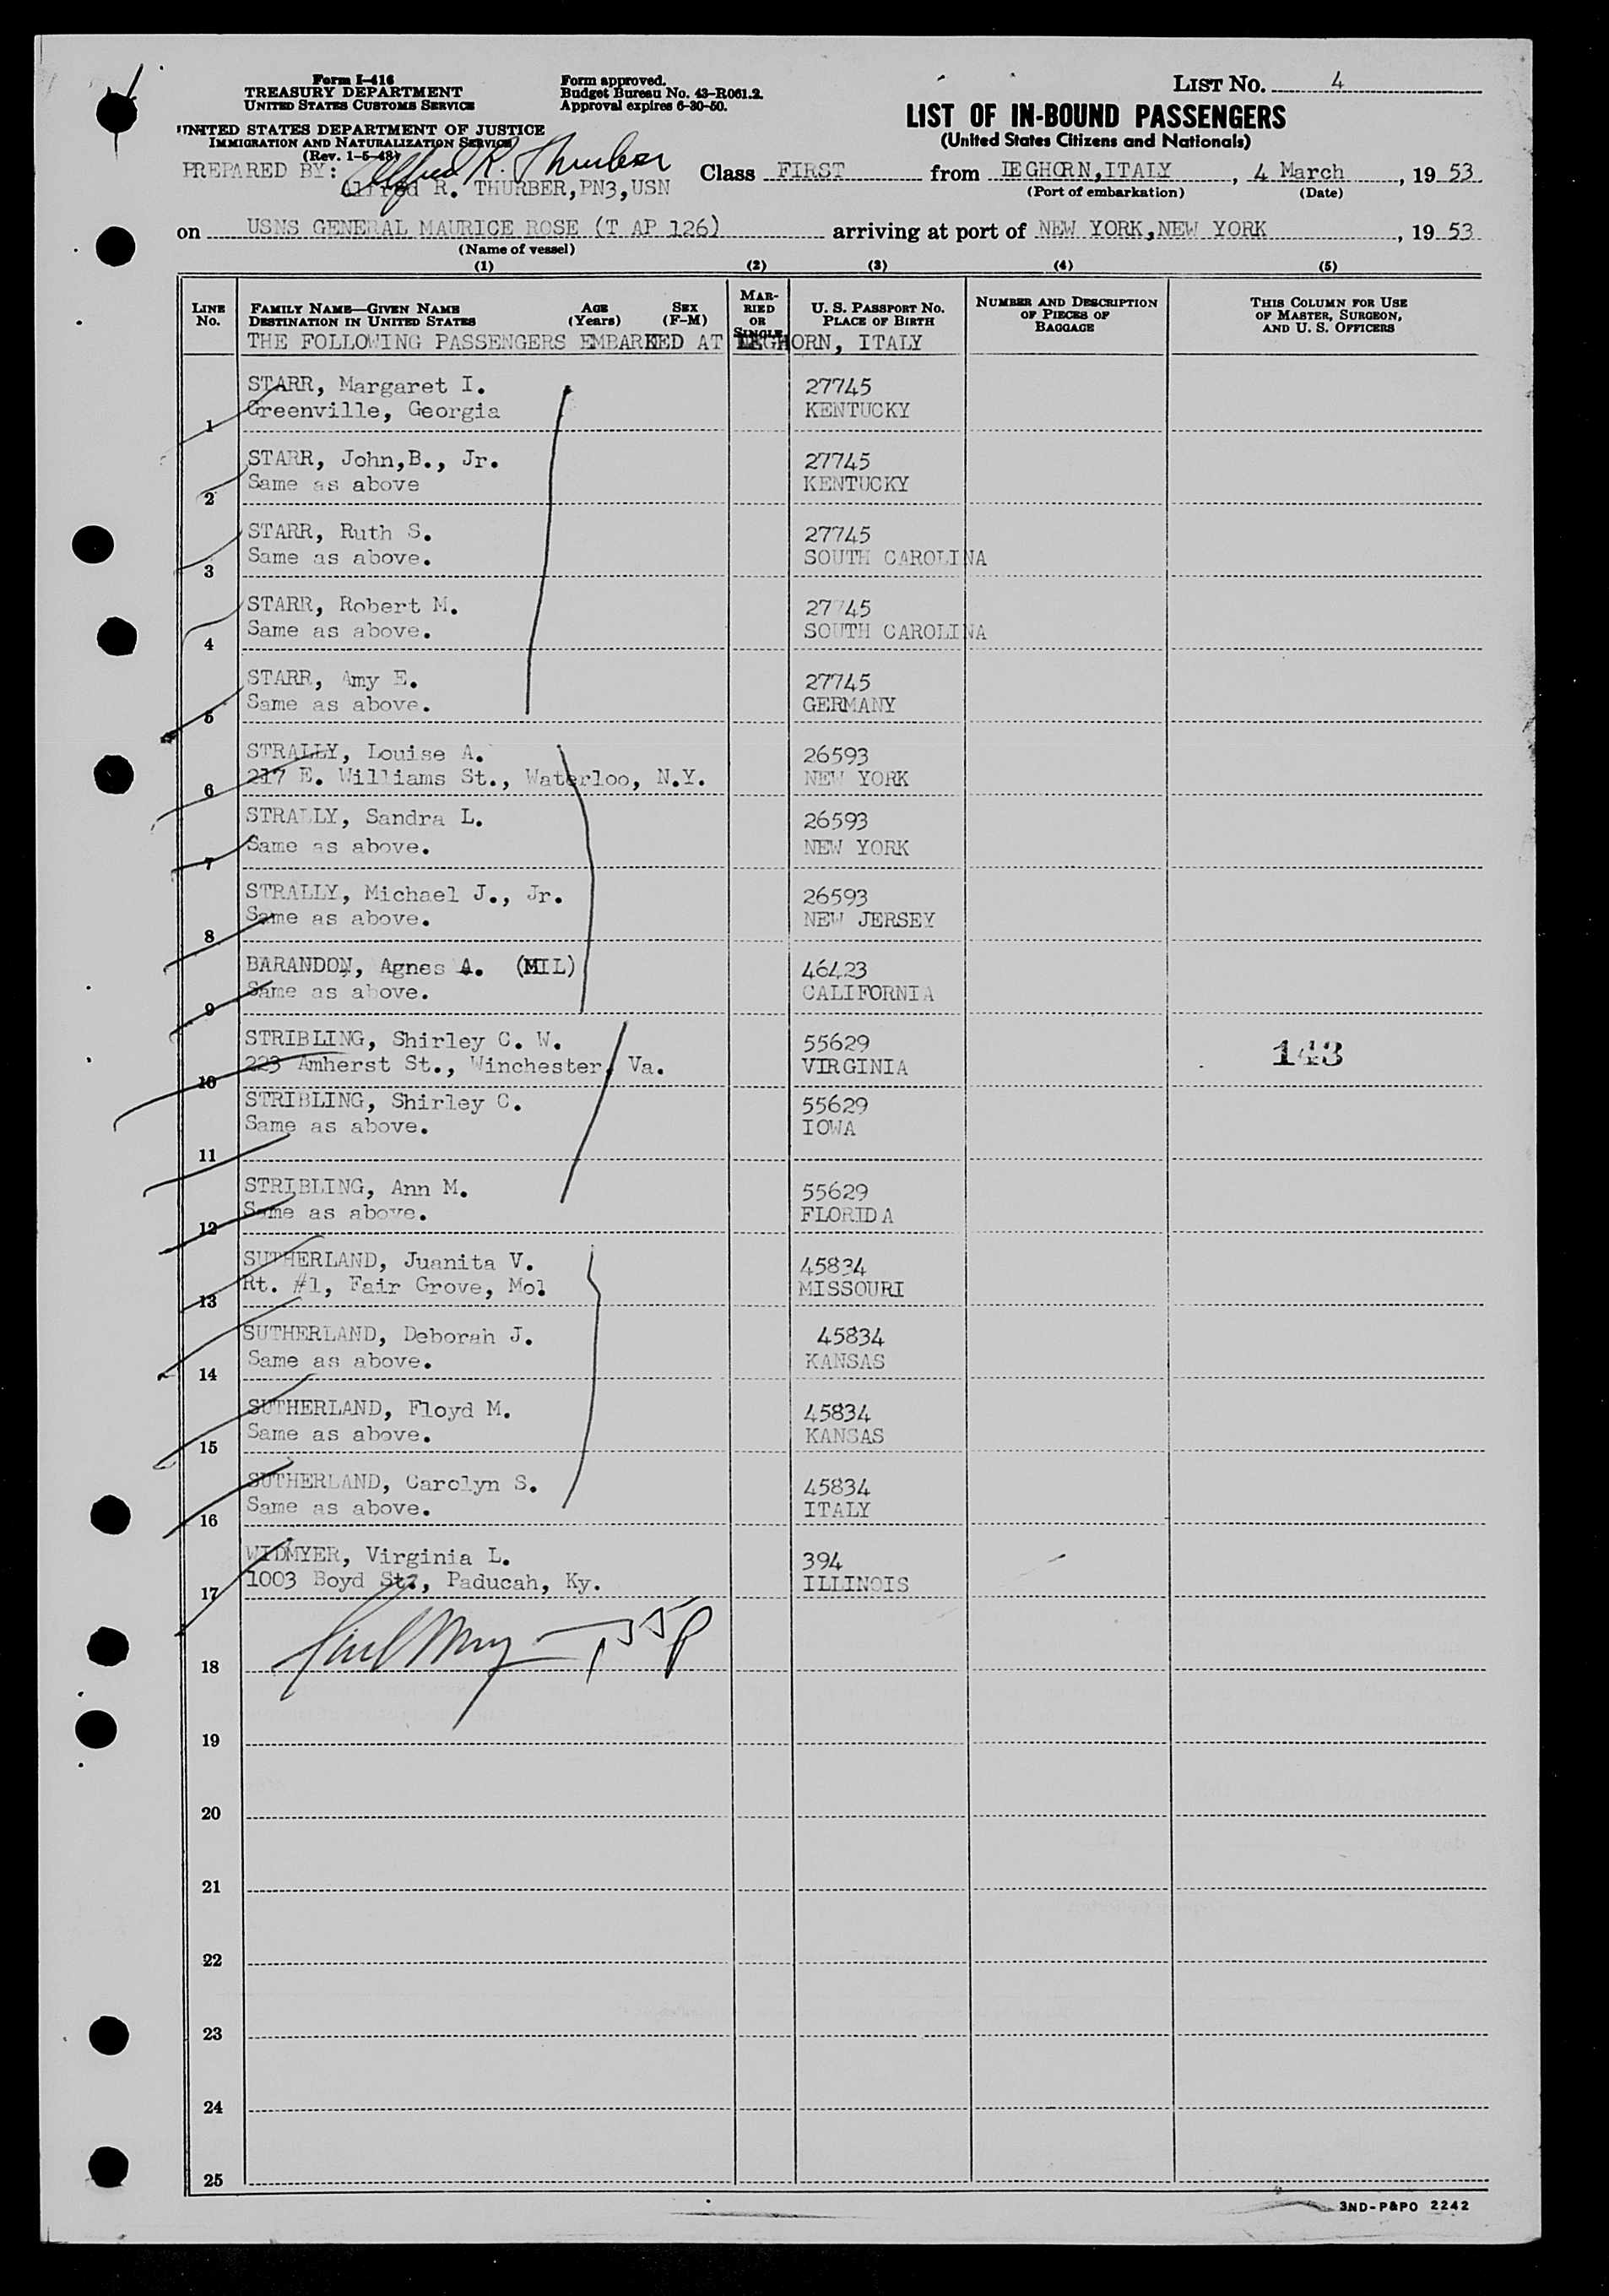 Form I-416
TREASURY DEPARTMENT
UNITED STATES CUSTOMS SERVICE
UNITED STATES DEPARTMENT OF JUSTICE
IMMIGRATION AND NATURALIZATION SERVICE
(Rev. 1-5-48)
Form approved.
Budget Bureau No. 43-R061.2.
Approval expires 6-30-50.
LIST No. 4
LIST OF IN-BOUND PASSENGERS
(United States Citizens and Nationals)
PREPARED BY: Alfred R. Thurber
Alfred R. THURBER,PN3,USN
Class FIRST from LEGHORN,ITALY, 4 March, 19 53
(Port of embarkation) (Date)
on USNS GENERAL MAURICE ROSE (T AP 126) arriving at port of NEW YORK,NEW YORK, 19 53
(Name of vessel)
(1) (2) (3) (4) (5)
LINE No. FAMILY NAME—GIVEN NAME DESTINATION IN UNITED STATES AGE (Years) SEX (F-M) MARRIED OR SINGLE U. S. PASSPORT NO. PLACE OF BIRTH NUMBER AND DESCRIPTION OF PIECES OF BAGGAGE THIS COLUMN FOR USE OF MASTER, SURGEON, AND U. S. OFFICERS
THE FOLLOWING PASSENGERS EMBARKED AT LEGHORN, ITALY
STARR, Margaret I. 27745
1 Greenville, Georgia KENTUCKY
STARR, John,B., Jr. 27745
2 Same as above KENTUCKY
STARR, Ruth S. 27745
3 Same as above. SOUTH CAROLINA
STARR, Robert M. 27745
4 Same as above. SOUTH CAROLINA
STARR, Amy E. 27745
5 Same as above. GERMANY
STRALLY, Louise A. 26593
6 217 E. Williams St., Waterloo, N.Y. NEW YORK
STRALLY, Sandra L. 26593
7 Same as above. NEW YORK
STRALLY, Michael J., Jr. 26593
8 Same as above. NEW JERSEY
BARANDON, Agnes A. (MIL) 46423
9 Same as above. CALIFORNIA
STRIBLING, Shirley C. W. 55629 143
10 223 Amherst St., Winchester, Va. VIRGINIA
STRIBLING, Shirley C. 55629
11 Same as above. IOWA
STRIBLING, Ann M. 55629
12 Same as above. FLORIDA
SUTHERLAND, Juanita V. 45834
13 Rt. #1, Fair Grove, Mo. MISSOURI
SUTHERLAND, Deborah J. 45834
14 Same as above. KANSAS
SUTHERLAND, Floyd M. 45834
15 Same as above. KANSAS
SUTHERLAND, Carolyn S. 45834
16 Same as above. ITALY
WIDMYER, Virginia L. 394
17 1003 Boyd St., Paducah, Ky. ILLINOIS
18
19
20
21
22
23
24
25
3ND-P&PO 2242